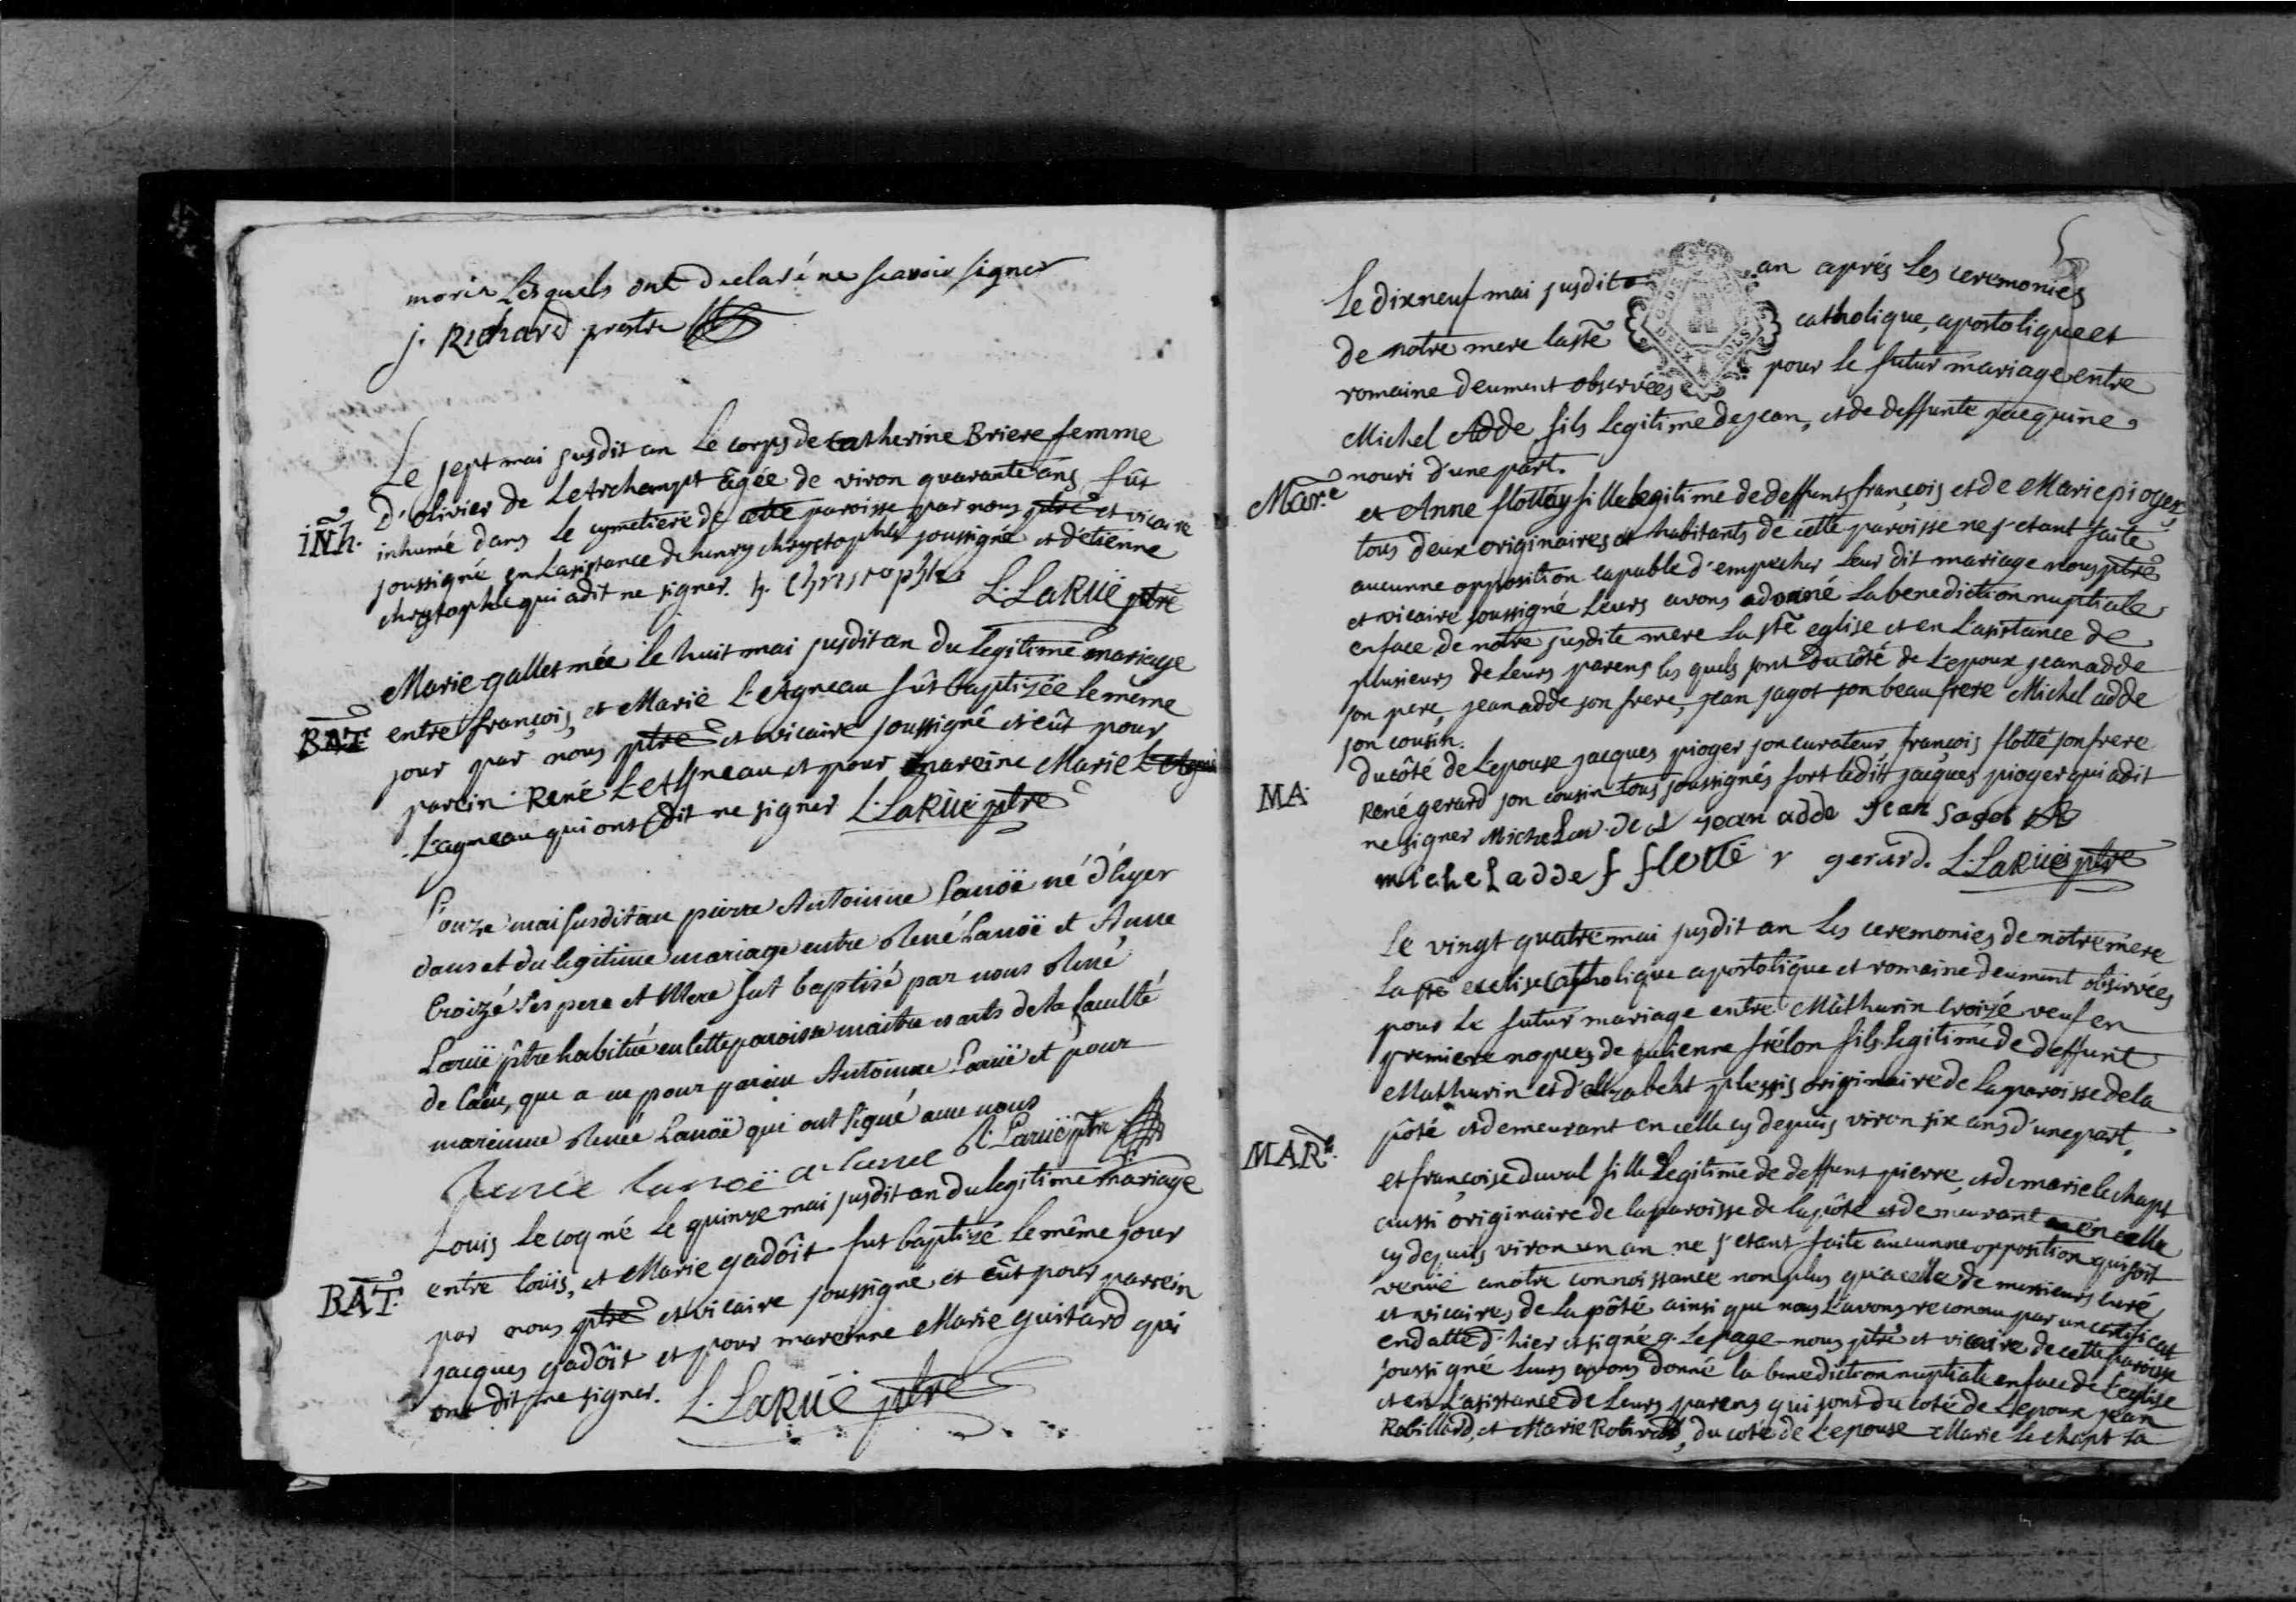 morin Lesquels ont declaré ne scavoir signer
j. Richard prestre
Le sept mai susdit an Le corps de Catherine Briere femme
d'olivier de LeArchampt âgée de viron quarante ans fût
INh.
inhumé dans le cymetiere de cette paroisse par nous ptre et vicaire
soussigné en L'asistance de henry chrystophle soussigné et d'etienne
chrystophle qui a dit ne signer. h. Christophle L. LaRüe ptre
Marie gallet née le huit mai susdit an du Legitime mariage
BAT
entre françois, et Marie L'eAgneau fût baptizée le même
jour par nous ptre et vicaire soussigné et eût pour
parein René L'eAgneau et pour mareine Marie
L'agneau qui ont dit ne signer L. LaRüe ptre
L'onze mai susdit an pierre Antoinne Lanoë né d'hyer
dans et du legitime mariage entre René Lanoë et Anne
Croizé ses pere et Mere fut baptisé par nous René
Larüe ptre habitué en cette paroisse maitre es arts de la faculté
de Caën, que a eu pour parain Antoinne Larüe et pour
marainne Renée Lanoë qui ont signé avec nous
Renee lanoë a larue R. Larüe ptre
Louis Lecoq né le quinze mai susdit an du legitime mariage
entre loüis, et Marie gadôit fut baptizé le même jour
BAT.
par nous ptre et vicaire soussigné et eût pour parrein
jacques gadôit et pour mareinne Marie guitard qui
ont dit ne signer. L. LaRüe ptre
Le dixneuf mai susdit an aprés les ceremonies
de notre mere la ste catholique, apostolique et
romaine deument observées pour le futur mariage entre
Michel Adde fils Legitime de jean, et de deffunte jacquine
nouri d'une part.
Mar.e
et Anne flottéy fille legitime de deffunt françois et de Marie pioger,
tous deux originaires et habitants de cette paroisse ne s'etant faite
aucunne opposition capable d'empecher leur dit mariage nous ptre
et vicaire soussigné Leurs avons adonné La benediction nuptiale
en face de notre susdite mere la ste eglise et en L'asistance de
plusieurs de leurs parens les quels sont Du côté de L'epoux jean adde
son pere, jean adde son frere, jean jagot son beau frere Michel adde
son cousin.
MA.
du côté de L'epouse jacques pioger son curateur, françois flotté son frere
René gerard son cousin tous soussignés fort ledit jacques pioger qui adit
ne signer Michel jean adde jean Jagot
michel adde f flotté r gerard. L. LaRüe ptre
Le vingt quatre mai susdit an les ceremonies de notre mere
La ste eclise Catholique apostolique et romaine deument observées
pour le futur mariage entre Mathurin croizé veuf en
premiere nopces de julienne frélon fils legitime de deffunt
Mathurin et d'elizabeht plessis originaire de la paroisse de la
pôté et demeurant en celle cy depuis viron six ans d'une part.
MAR.e
et françoise duval fille Legitime de deffunt pierre, et de marie lechapt
aussi originaire de la paroisse de la pôté et demeurant en celle
cy depuis viron un an ne s'etant faite aucunne opposition qui soit
venüe anotre connoissance non plus qu'a celle de messieurs curé
et vicaires de la pôté ainsi que nous L'avons reconnu par un certificat
en datte d'hier et signé g. Lepage nous ptre et vicaire de cette paroisse
soussigné leurs avons donné la benediction nuptiale en face de L'eglise
et en L'asistance de Leurs parens qui sont du coté de L'epoux jean
Robillard, et Marie Robivard, du coté de L'epouse Marie Le chapt sa